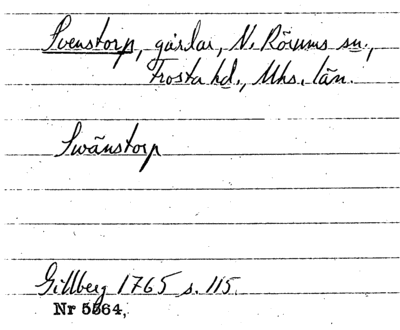 Svenstorp, gårdar, N. Rörums sn.,
Frosta hd., Mhs. län.
Swänstorp
Gillberg 1765 s. 115.
Nr 5564,